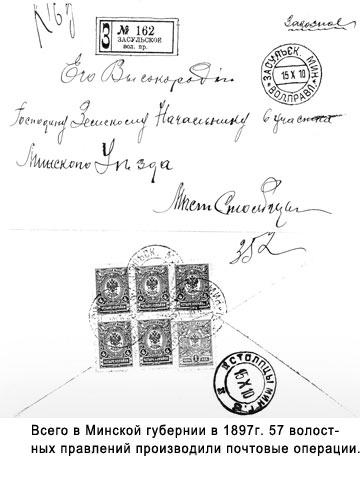 Заказное
З № 162
ЗАСУЛЬСКОЙ
вол. пр.
ЗАСУЛЬСК. МИН.
15 X 10
ВОЛ.ПРАВЛ.
Его Высокородію
Господину Земскому Начальнику 6 участка
Минскаго Уѣзда
Мѣст. Столбцы
352
СТОЛБЦЫ МИН. Г.
15 X 10
Всего в Минской губернии в 1897г. 57 волост-
ных правлений производили почтовые операции.